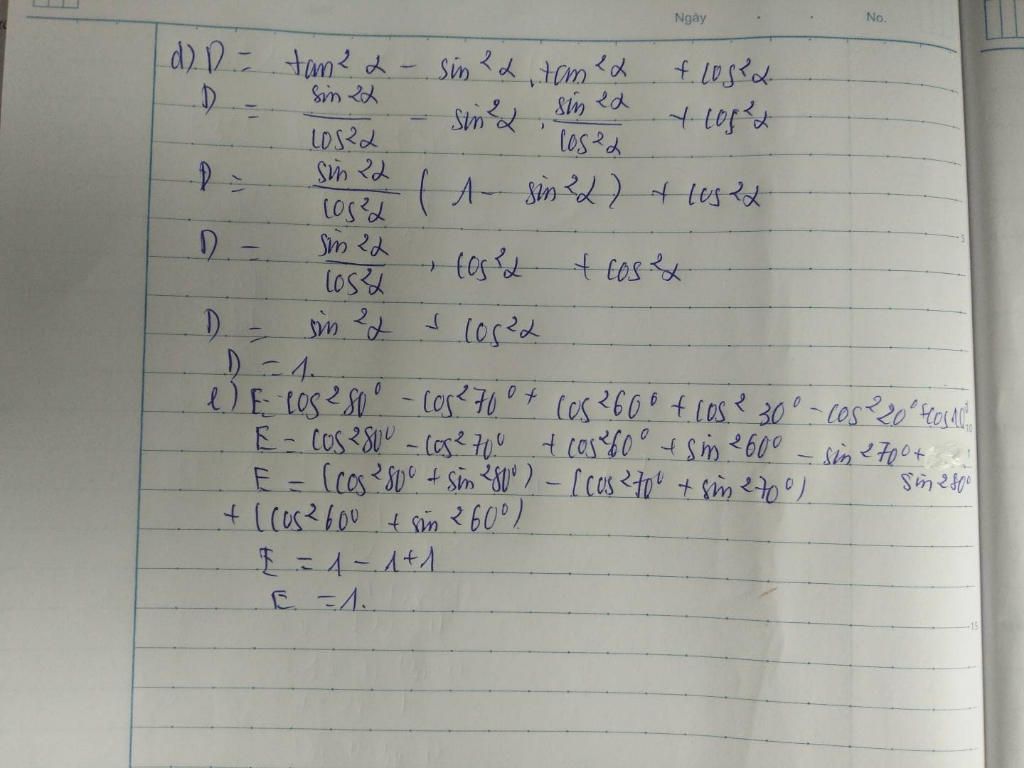 Ngày No.
d) D = tan² α - sin² α . tan² α + cos² α
D = sin²α/cos²α - sin²α . sin²α/cos²α + cos²α
D = sin²α/cos²α ( 1 - sin²α ) + cos²α
5
D = sin²α/cos²α . cos²α + cos²α
D = sin²α + cos²α
D = 1.
e) E = cos²80° - cos²70° + cos²60° + cos²30° - cos²20° + cos10°
10
E = cos²80° - cos²70° + cos²60° + sin²60° - sin²70° +
sin²80°
E = (cos²80° + sin²80°) - (cos²70° + sin²70°)
+ (cos²60° + sin²60°)
E = 1 - 1 + 1
E = 1.
15